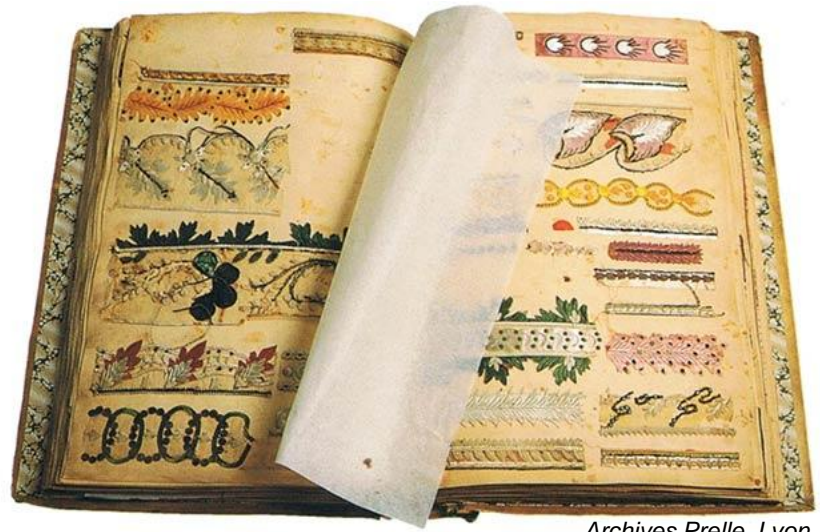 Archives Prelle, Lyon